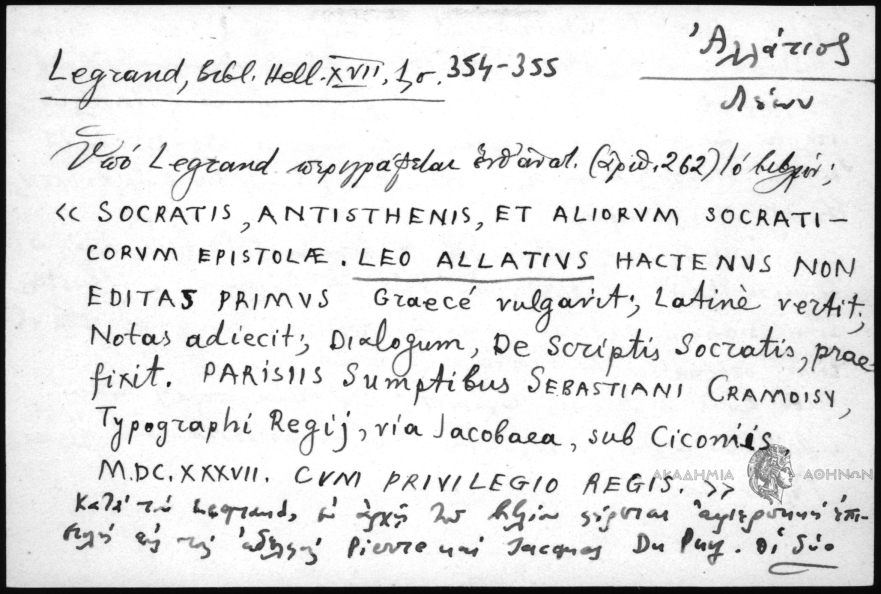 Ἀλλάτιος
Λέων
Legrand, Bibl. Hell. XVII, 1, σ. 354-355
Ὑπό Legrand περιγράφεται (ἀριθ. 262) τό βιβλίον;
« SOCRATIS, ANTISTHENIS, ET ALIORVM SOCRATI-
CORVM EPISTOLÆ. LEO ALLATIVS HACTENVS NON
EDITAS PRIMVS Graecé vulgavit; Latinè vertit;
Notas adiecit; Dialogum, De Scriptis Socratis, prae-
fixit. PARISIIS Sumptibus SEBASTIANI CRAMOISY,
Typographi Regij, via Jacobaea, sub Ciconiis,
M.DC.XXXVII. CVM PRIVILEGIO REGIS. »
ΑΚΑΔΗΜΙΑ ΑΘΗΝΩΝ
Κατά τόν Legrand, ἐν ἀρχῇ τοῦ βιβλίου φέρεται ἀφιερωτική ἐπι-
στολή εἰς τούς ἀδελφούς Pierre καί Jacques Du Puy. Οἱ δύο